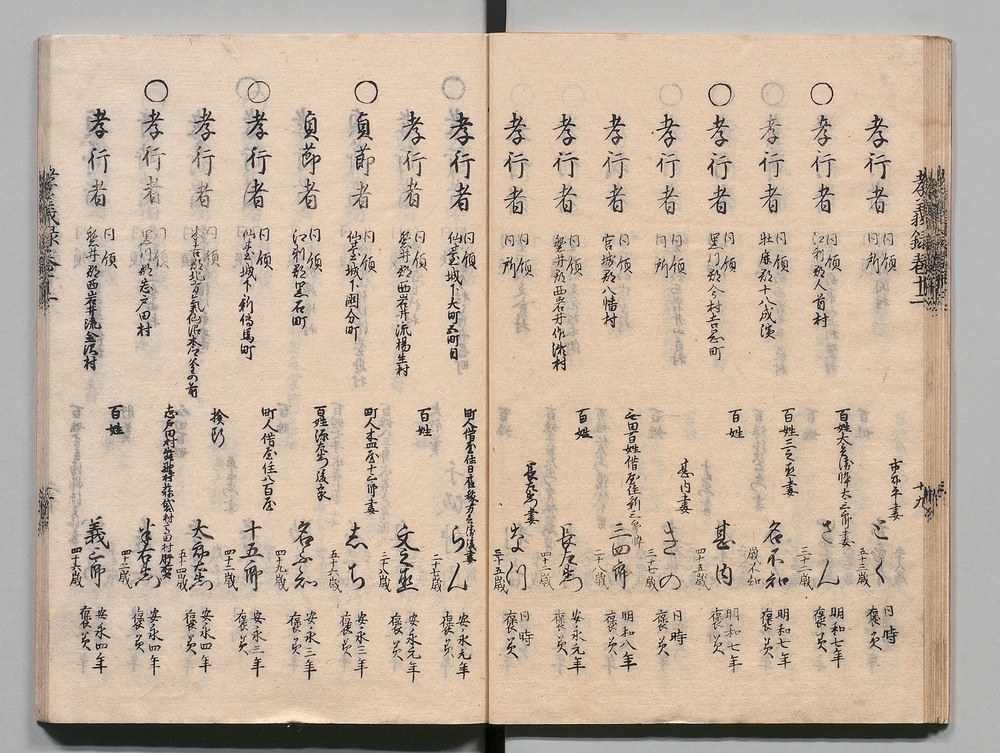 孝義録巻廿二
十九
孝行者 同領同所 市郎平妻 とく 五十三歳 同時褒美
○孝行者 同領江刺郡人首村 百姓太兵衛悴太三郎妻 さん 三十二歳 明和七年褒美
孝行者 同領牡鹿郡十八成濱 百姓三之丞妻 名不知 歳不知 明和七年褒美
○孝行者 同領黒川郡今村吉岡町 百姓 甚内 四十五歳 明和七年褒美
孝行者 同領同所 甚内妻 きの 三十七歳 同時褒美
孝行者 同領宮城郡八幡村 百姓借屋住新三郎悴 二四郎 二十八歳 明和八年褒美
孝行者 同領磐井郡西岩井作瀬村 百姓 長左衛門 四十二歳 安永元年褒美
孝行者 同領同所 長左衛門妻 なつ 三十五歳 同時褒美
孝行者 同領仙臺城下大町五町目 町人借屋住日雇 妻 らん 三十七歳 安永元年褒美
孝行者 同領磐井郡西岩井流楊生村 百姓 文之丞 三十八歳 安永元年褒美
○貞節者 同領仙臺城下國分町 町人木皿屋十三郎妻 志ち 五十六歳 安永三年褒美
貞節者 同領江刺郡黒石町 百姓源左衛門後家 名不知 四十九歳 安永三年褒美
○孝行者 同領仙臺城下新傳馬町 町人借屋住八百屋 十五郎 四十二歳 安永三年褒美
孝行者 同領本吉郡北方氣仙沼本釜の前 検断 太郎左衛門 五十四歳 安永四年褒美
○孝行者 同領黒川郡志戸田村 志戸田村 半右衛門 四十二歳 安永四年褒美
孝行者 同領磐井郡西岩井流金沢村 百姓 義三郎 四十六歳 安永四年褒美
孝義録巻廿二